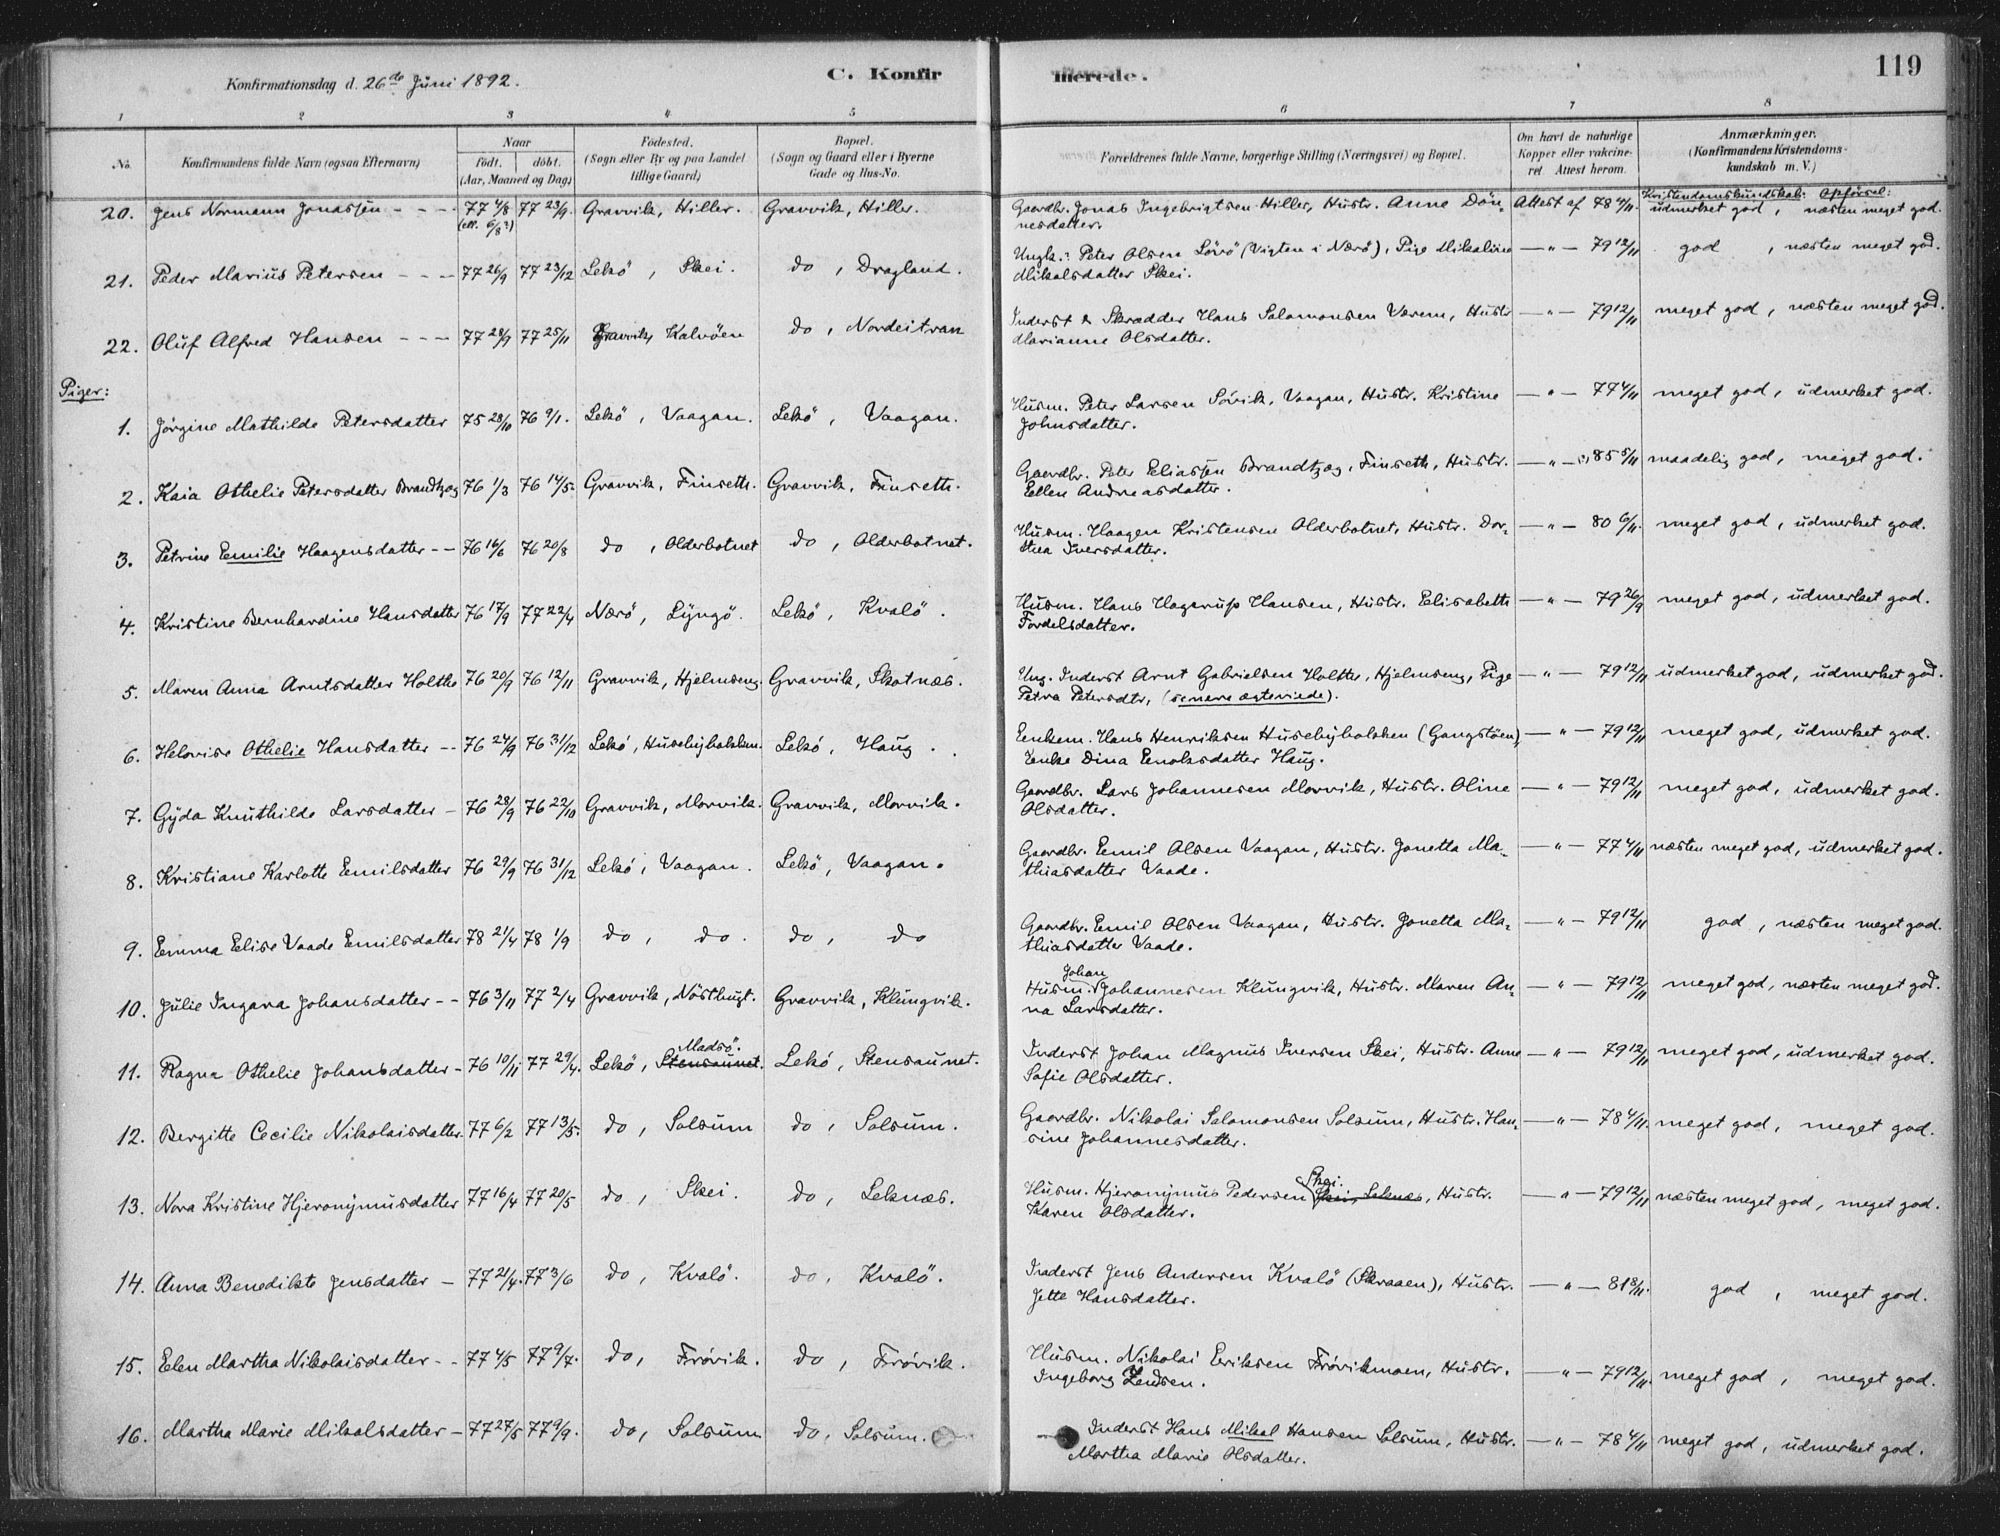 Konfirmationsdag d. 26de Juni 1892. C. Konfirmerede. 119
1 2 3 4 5 6 7 8
No. Konfirmandens fulde Navn (ogsaa Efternavn) Naar födt. döbt. (Aar, Maaned og Dag) Födested. (Sogn eller By og paa Landet tillige Gaard) Bopæl. (Sogn og Gaard eller i Byerne Gade og Hus-No. Forældrenes fulde Navne, borgerlige Stilling (Næringsvei) og Bopæl. Om havt de naturlige Kopper eller vakcineret. Attest herom. Anmærkninger. (Konfirmandens Kristendomskundskab m. V.)
Kristendomskundskab: Opførsel:
20. Jens Normann Jonassen - - - 77 4/8 (ell. 6/8?) 77 23/9 Gravvik, Hiller. Gravvik, Hiller. Gaardbr. Jonas Ingebrigtsen Hiller, Hustr. Anne Dön- Attest af 78 4/11. udmerket god, næsten meget god.
nesdatter.
21. Peder Marius Petersen - - - 77 26/9 77 23/12 Lekö, Skei. do, Dragland. Ungk.: Peter Olsen Lörö (Vigten i Nærö), Pige Mikaline — " — 79 12/11 god, næsten meget god.
Mikalsdatter Skei.
22. Oluf Alfred Hansen - - - 77 28/9 77 25/11 Gravvik, Kalvöen do, Nordeitran Inderst & Skrædder Hans Salomonsen Værem, Hustr — " — 79 12/11 meget god, næsten meget god.
Marianne Olsdatter.
Piger:
1. Jörgine Mathilde Petersdatter 75 28/10 76 9/1. Lekö, Vaagan. Lekö, Vaagan. Husm. Peter Larsen Sövik, Vaagan, Hustr. Kristine — " — 79 4/11 meget god, udmerket god.
Johnsdatter.
2. Kaia Othelie Petersdatter Brandtzæg 76 1/3 76 14/5. Gravvik, Finseth. Gravvik, Finseth. Gaardbr. Peter Eeliassen Brandtzæg, Finseth, Hustr. — " — 85 5/11 maadelig god, meget god.
Eellen Andreasdatter.
3. Petrine Eemilie Haagensdatter - - 76 16/6 76 20/8 do, Olderbotnet do, Olderbotnet. Husm. Haagen Kristensen Olderbotnet, Hustr. Dor- — " — 80 6/11. meget god, udmerket god.
thea Iversdatter.
4. Kristine Bernhardine Hansdatter 76 17/9 77 22/4 Nærö, Lyngö. Lekö, Kvalö. Husm. Hans Hagerup Hansen, Hustr. Elisabeth — " — 79 26/9 meget god, udmerket god.
Tordelsdatter.
5. Maren Anna Arntsdatter Holthe 76 20/9 76 12/11 Gravvik, Hjelmseng. Gravvik, Skotnæs. Ung. Inderst Arnt Gabrielsen Holthe, Hjelmseng, Pige — " — 79 12/11 udmerket god, udmerket god.
Petra Petersdtr, (senere ægteviede).
6. Helovise Othelie Hansdatter - - 76 24/9 76 31/12 Lekö, Husebybakken. Lekö, Haug. Eenkem. Hans Henriksen Husebybakken (Gangstöen), — " — 79 12/11 meget god, udmerket god.
Eenke Dina Eenoksdatter Haug.
7. Gyda Knuthilde Larsdatter - 76 28/9 76 22/10 Gravvik, Morvik. Gravvik, Morvik. Gaardbr. Lars Johannesen Morvik, Hustr. Oline — " — 79 12/11 meget god, udmerket god.
Olsdatter.
8. Kristiane Karlotte Eemilsdatter 76 29/9 76 31/12 Lekö, Vaagan. Lekö, Vaagan. Gaardbr. Eemil Olsen Vaagan, Hustr. Jonetta Ma- — " — 77 4/11 næsten meget god, udmerket god.
thiasdatter Vaade.
9. Eemma Eelise Vaade Eemilsdatter 78 21/4 78 1/9 do, do. do, do Gaardbr. Eemil Olsen Vaagan, Hustr. Jonetta Ma- — " — 79 12/11 god, næsten meget god.
thiasdatter Vaade.
10. Julie Ingara Johansdatter - - 76 3/11 77 2/4 Gravvik, Nösthugt. Gravvik, Klungvik. Husm. Johan Johannesen Klungvik, Hustr. Maren An- — " — 79 12/11 meget god, næsten meget god.
na Larsdatter.
11. Ragna Othelie Johansdatter - 76 10/11 77 29/4. Lekö, Stensaunet. Madsö. Lekö, Stensaunet. Inderst Johan Magnus Iversen Skei, Hustr. Anne — " — 79 12/11 meget god, udmerket god.
Sofie Olsdatter.
12. Bergitte Cecilie Nikolaisdatter 77 6/2 77 13/5. do, Solsum do, Solsum. Gaardbr. Nikolai Salamonsen Solsum, Hustr. Han- — " — 78 4/11. meget god, meget god.
sine Johannesdatter.
13. Nora Kristine Hjeronymusdatter 77 16/4 77 20/5 do, Skei. do, Leknæs. Husm. Hjeronymus Pedersen Skei. Skei, Leknæs, Hustr. — " — 79 12/11 næsten meget god, meget god.
Karen Olsdatter.
14. Anna Benedikte Jensdatter - 77 21/4. 77 3/6 do, Kvalö. do, Kvalö. Inderst Jens Andersen Kvalö (Skraaen), Hustr. — " — 81 8/11. god, meget god.
Jette Hansdatter.
15. Eelen Martha Nikolaisdatter - - 77 4/5 77 9/7. do, Frövik. do, Frövik. Husm. Nikolai Eeriksen Frövikmoen, Hustr. — " — 79 12/11. meget god, meget god.
Ingeborg
16. Martha Marie Mikalsdatter - 77 27/5 77 9/9. do, Solsum do, Solsum. Inderst Hans Mikal Hansen Solsum, Hustr. — " — 78 4/11 meget god, udmerket god.
Martha Marie Olsdatter.